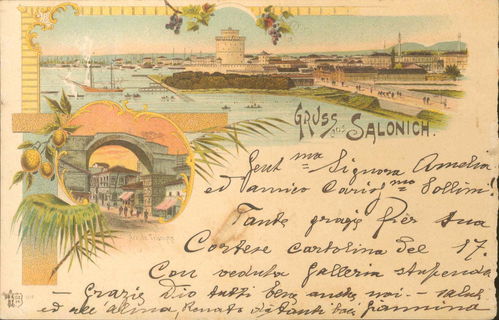 GRUSS aus SALONICH.
Gent ma Signora Amelia
ed amico Cariss mo
Tante grazie per sua
Cortese Cartolina del 17.
Con veduta Galleria stupenda
Grazie Dio tutti bene anche noi - saluti
ed alle Renato